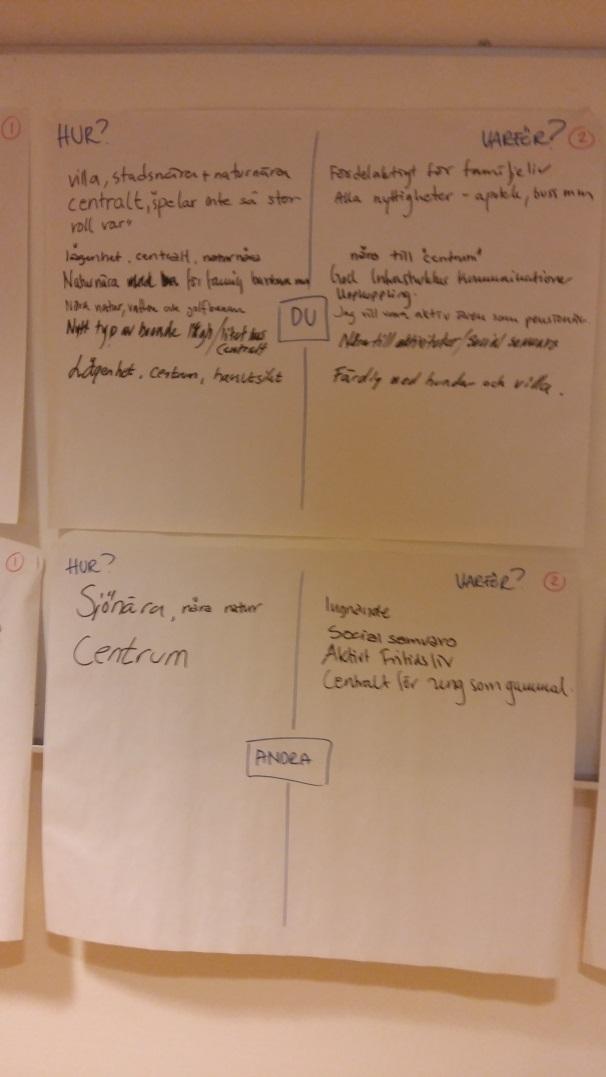 1
HUR?
VARFÖR? 2
villa, stadsnära + naturnära
centralt, "spelar inte så stor
roll var"
lägenhet, centralt, naturnära
Naturnära för familj
Nära natur, vatten och golfbanan
Nytt typ av boende lägh/litet hus
centralt
Lägenhet, centrum, havsutsikt
DU
Fördelaktigt för familjeliv
Alla nyttigheter - apotek, buss mm
nära till "centrum"
God Infrastruktur kommunikationer
Uppkoppling.
Jag vill vara aktiv även som pensionär.
Nära till aktiviteter/social samvaro
Färdig med hundar och villa.
1
HUR?
VARFÖR? 2
Sjönära, nära natur
Centrum
ANDRA
Social samvaro
Aktivt Fritidsliv
Centralt för ung som gammal.